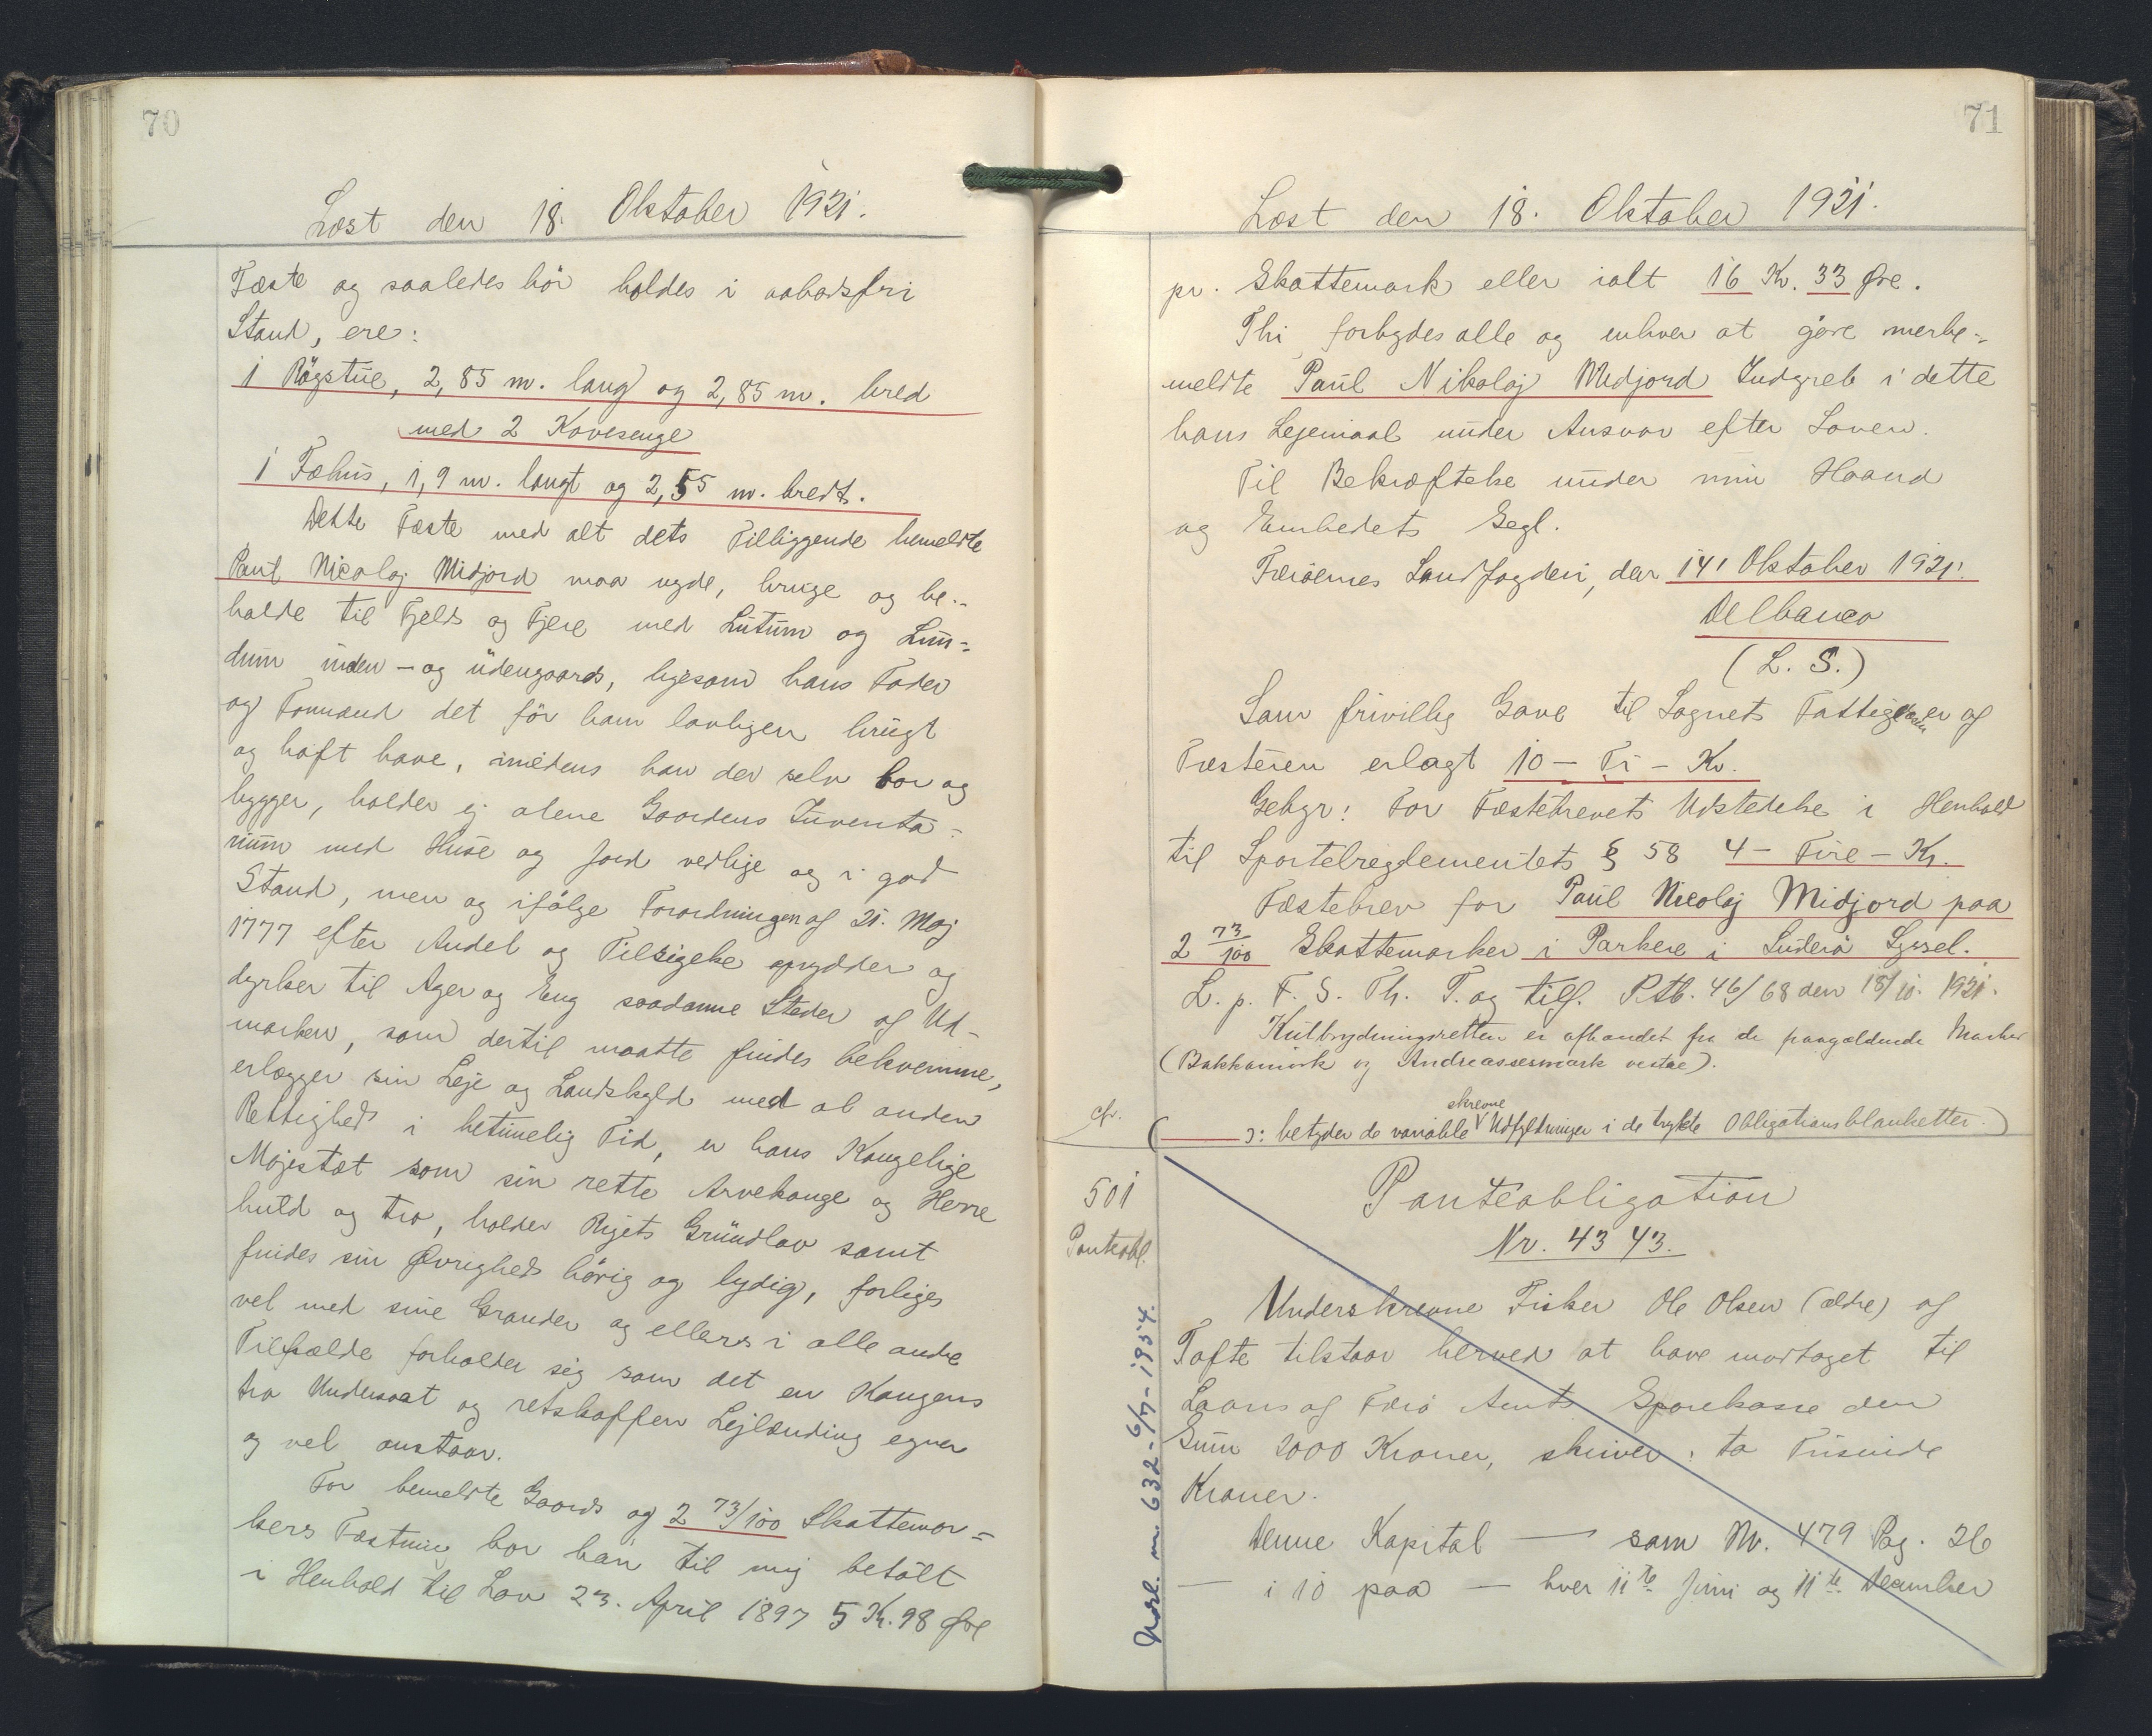 70
Læst den 18. Oktober 1921.
Fæste og saaledes bör holdes i aabodsfri
Stand, ere:
1 Rögstue, 2,85 m. lang og 2,85 m. bred
med 2 Kovesenge
1 Fæhus, 1,9 m. langt og 2,55 m. bredt.
Dette Fæste med alt dets Tilliggende bemeldte
Paul Nicolaj Midjord maa nyde, bruge og be-
holde til Fjelds og Fjere med Lutum og Lun-
dum inden- og udengaards, ligesom hans Fader
og Formand det för ham lovligen brugt
og haft have, imedens han der selv bor og
bygger, holder ej alene Gaardens Inventa-
rium med Huse og Jord vedlige og i god
Stand, men og ifölge Forordningen af 21. Maj
1777 efter Andel og Tilsigelse oprydder og
dyrker til Ager og Eng saadanne Steder af Ud-
marken, som dertil maatte findes bekvemme,
erlægger sin Leje og Landskyld med al anden
Rettighed i betimelig Tid, er hans Kongelige
Majestæt som sin rette Arvekonge og Herre
huld og tro, holder Rigets Grundlov samt
findes sin Øvrighed hörig og lydig, forliges
vel med sine Grander og ellers i alle andre
Tilfælde forholder sig som det en Kongens
tro Undersaat og retskaffen Lejlænding egner
og vel anstaar.
For bemeldte Gaards og 2 73/100 Skattemar-
kers Fæstning har han til mig betalt
i Henhold til Lov 23. April 1897 5 Kr. 98 Øre
71
Læst den 18. Oktober 1921.
pr. Skattemark eller ialt 16 Kr. 33 Øre.
Thi forbydes alle og enhver at göre merbe-
meldte Paul Nikolaj Midjord Indgreb i dette
hans Lejemaal under Ansvar efter Loven.
Til Bekræftelse under min Haand
og Embedets Segl.
Færöernes Landfogderi, den 14' Oktober 1921.
Delbanco
(L. S.)
Som frivillig Gave til Sognets Fattige er af
Fæsteren erlagt 10 – Ti – Kr.
Gebyr: For Fæstebrevets Udstedelse i Henhold
til Sportelreglementets § 58 4 – Fire – Kr.
Fæstebrev for Paul Nicolaj Midjord paa
2 73/100 Skattemarker i Porkere i Suderö Syssel.
L. p. F. S. Th. T. og tilf. Ptb. 46/68 den 18/10. 1921.
Kulbrydningsretten er afhændet fra de paagældende Marker
(Bakkamörk og Andreassesmark vestre).
cfr.
skrevne
( ——— ɔ: betyder de variable Udfyldninger i de trykte Obligationsblanketter.)
501
Panteobl.
Panteobligation
Nr. 4343.
Underskrevne Fisker Ole Olsen (ældre) af
Tofte tilstaar herved at have modtaget til
Laans af Færö Amts Sparekasse den
Sum 2000 Kroner, skriver: to Tusinde
Kroner.
Denne Kapital —— som Nr. 479 Pag. 26
— i 10 paa — hver 11te Juni og 11te December
Udsl. m. 632-6/7-1954.